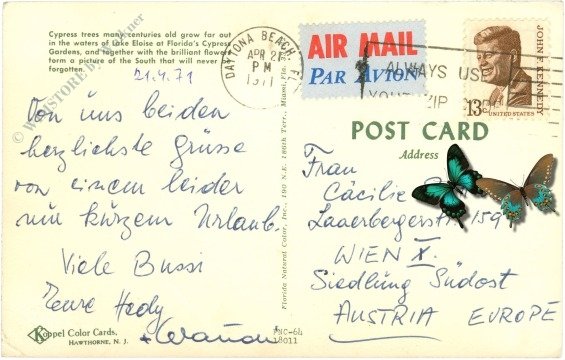 Cypress trees many centuries old grow far out
in the waters of Lake Eloise at Florida's Cypress
Gardens, and together with the brilliant flowers
form a picture of the South that will never be
forgotten.
21.4.71
Von uns beiden
herzlichste Grüsse
von einem leider
nur kurzem Urlaub.
Viele Bussi
Hedy
Koppel Color Cards,
HAWTHORNE, N. J.
FNC-64
18011
Florida Natural Color, Inc., 190 N.E. 186th Terr., Miami, Fla.
DAYTONA BEACH
APR 21
PM
1971
AIR MAIL
PAR AVION
ALWAYS USE
ZIP
JOHN F. KENNEDY
13c
UNITED STATES
POST CARD
Address
Frau
Cäcilie
Laaerbergerstr. 159
WIEN X.
Siedlung Südost
AUSTRIA EUROPE